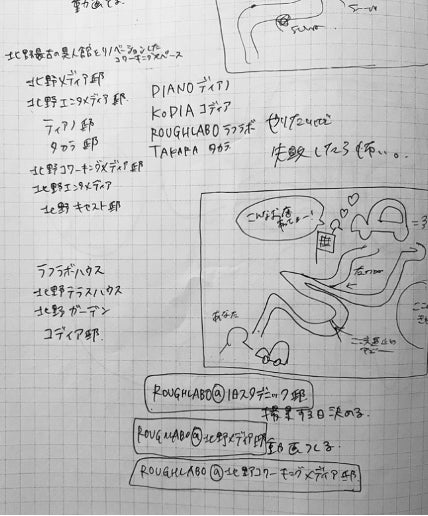 動画でる
北野最古の異人館をリノベーションした
コワーキングスペース
北野メディア邸
北野エンタメディア邸
ディアノ邸
タカラ邸
北野コワーキングメディア邸
北野エンタメディア
北野キャスト邸
DIANO ディアノ
KODIA コディア
ROUGHLABO ラフラボ
TAKARA タカラ
やりたいけど
失敗したら怖い。。
こんなお店
あなた
ラフラボハウス
北野テラスハウス
北野ガーデン
コディア邸
ROUGHLABO@旧スタデニック邸
撮影する日決める。
ROUGHLABO@北野メディア邸
動画つくる
ROUGHLABO@北野コワーキングメディア邸